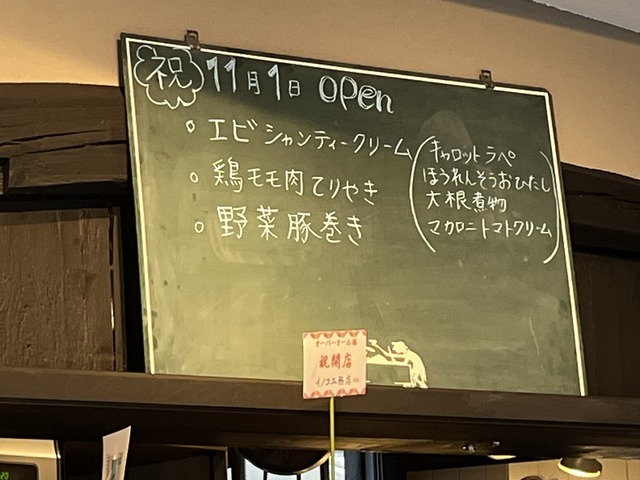 祝 11月1日 OPEN
○ エビシャンティークリーム
○ 鶏モモ肉てりやき
○ 野菜豚巻き
(キャロットラペ
ほうれんそうおひたし
大根煮物
マカロニトマトクリーム)
オーバーオール様
祝開店